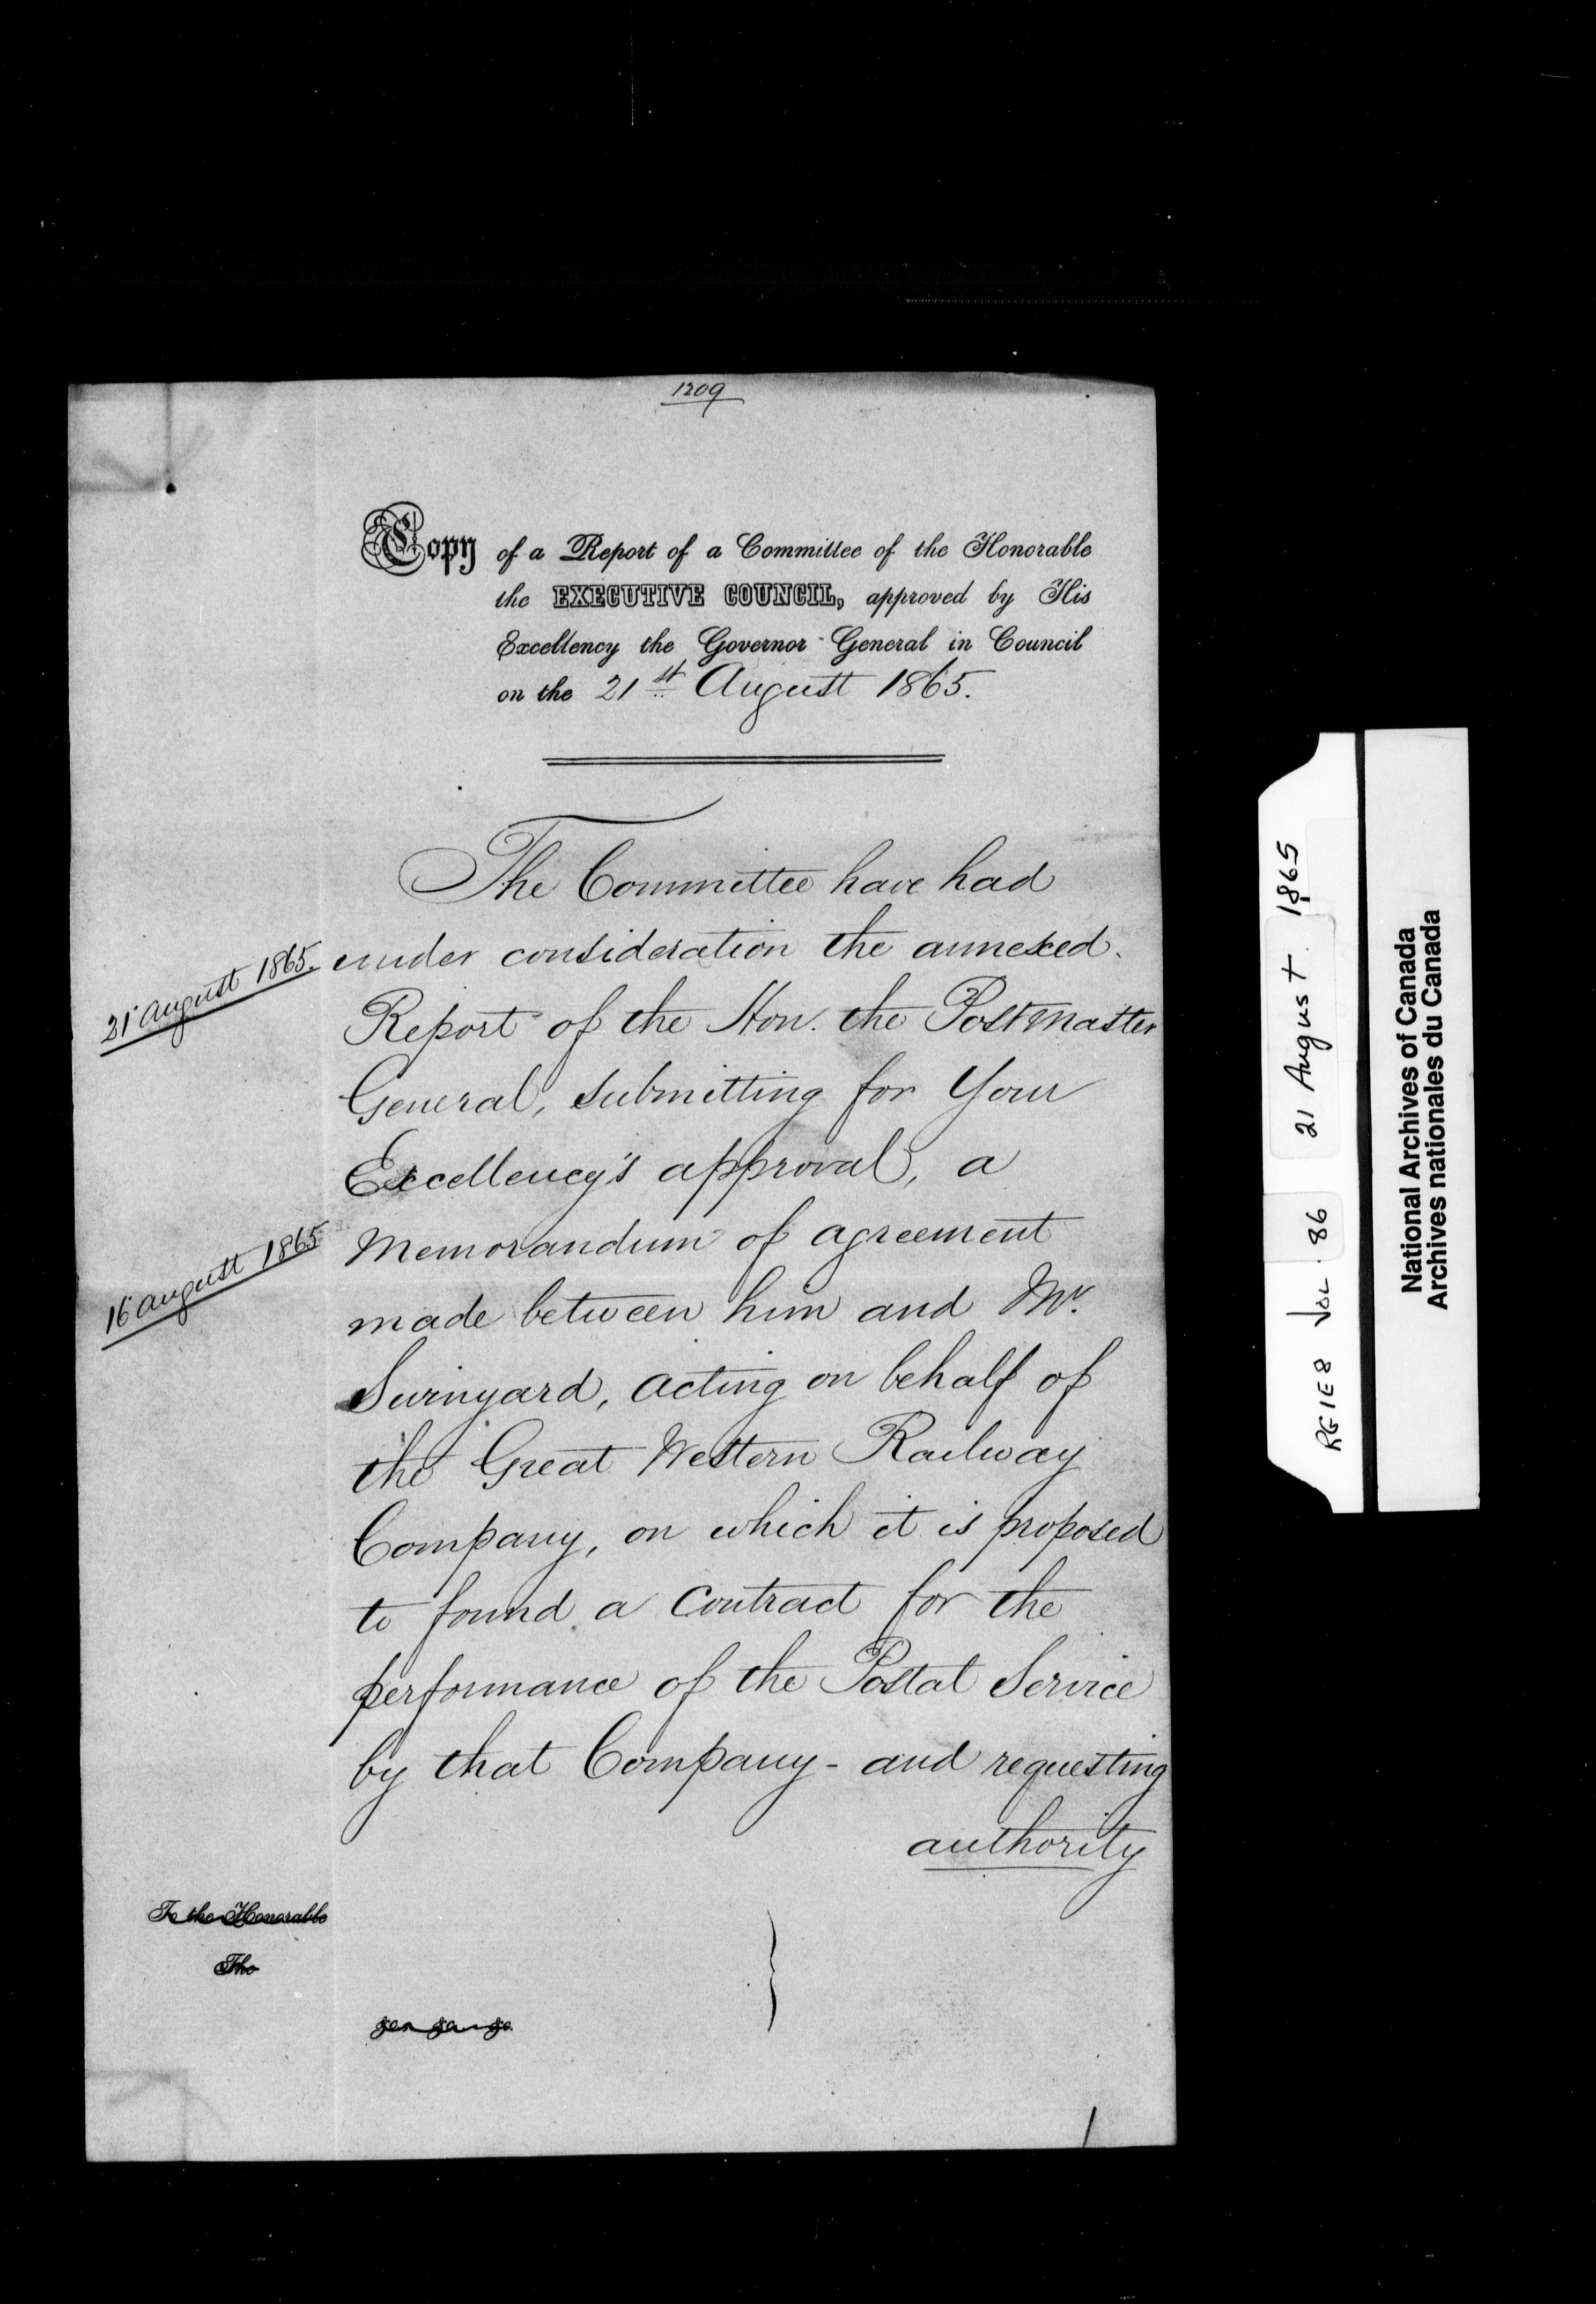 1209
Copy of a Report of a Committee of the Honorable
the EXECUTIVE COUNCIL, approved by His
Excellency the Governor General in Council
on the 21st August 1865.
The Committee have had
21 August 1865.
under consideration the annexed
Report of the Hon. the Postmaster
General, submitting for Your
Excellency's approval, a
16 August 1865
Memorandum of agreement
made between him and Mr.
Swinyard, acting on behalf of
the Great Western Railway
Company, on which it is proposed
to found a Contract for the
performance of the Postal Service
by that Company - and requesting
authority
To the Honorable
The
&c. &c. &c.
RG 1 E 8 VOL. 86 21 August 1865
National Archives of Canada
Archives nationales du Canada